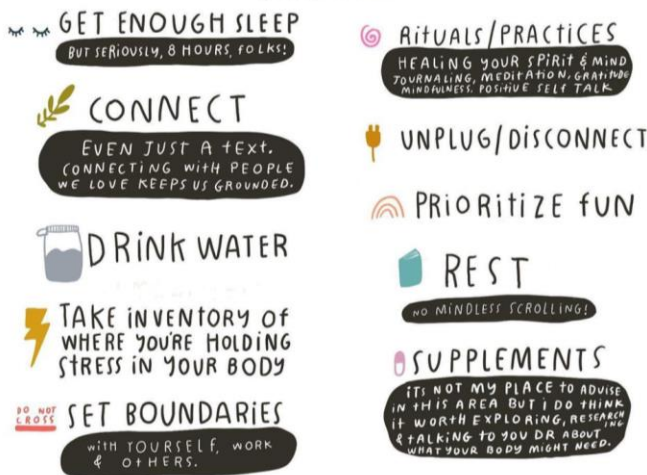 GET ENOUGH SLEEP
BUT SERIOUSLY, 8 HOURS, FOLKS!
CONNECT
EVEN JUST A TEXT.
CONNECTING WITH PEOPLE
WE LOVE KEEPS US GROUNDED.
DRINK WATER
TAKE INVENTORY OF
WHERE YOU'RE HOLDING
STRESS IN YOUR BODY
DO NOT
CROSS
SET BOUNDARIES
WITH YOURSELF, WORK
& OTHERS.
RITUALS/PRACTICES
HEALING YOUR SPIRIT & MIND
JOURNALING, MEDITATION, GRATITUDE
MINDFULNESS. POSITIVE SELF TALK
UNPLUG/DISCONNECT
PRIORITIZE FUN
REST
NO MINDLESS SCROLLING!
SUPPLEMENTS
ITS NOT MY PLACE TO ADVISE
IN THIS AREA BUT I DO THINK
IT WORTH EXPLORING, RESEARCHING
& TALKING TO YOU DR ABOUT
WHAT YOUR BODY MIGHT NEED.